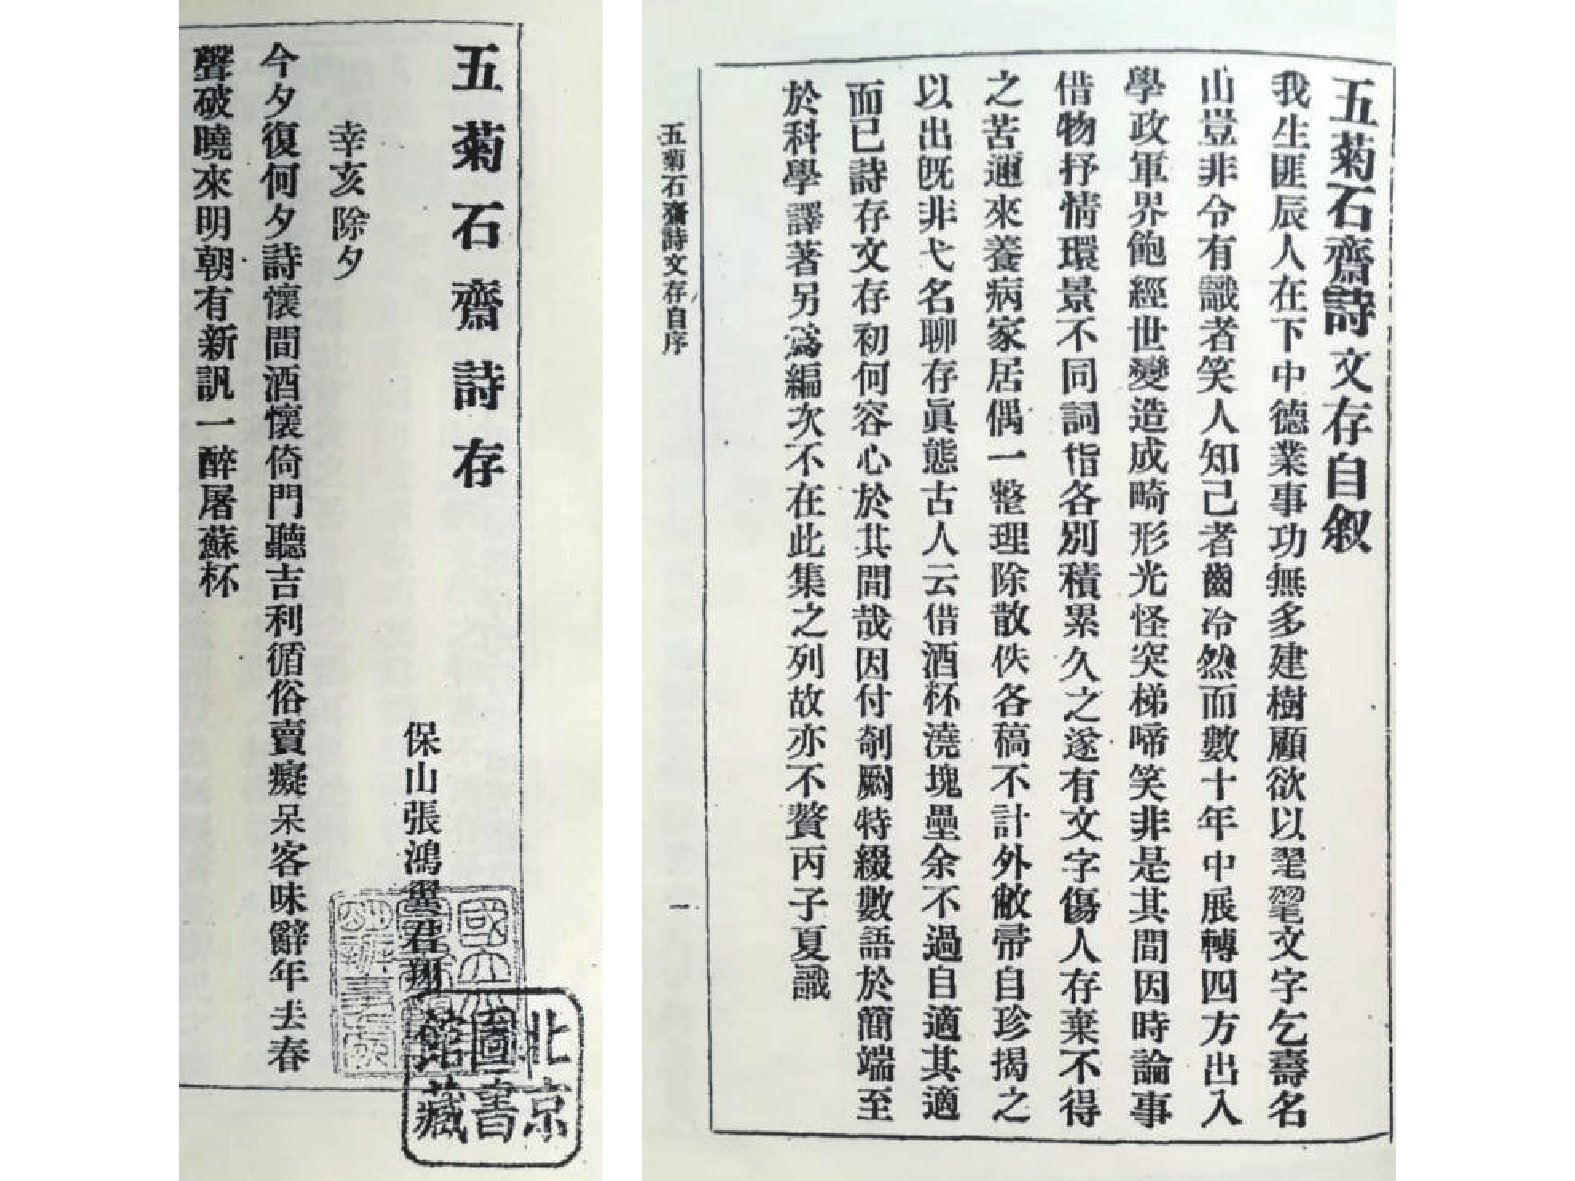 五菊石齋詩文存自叙
我生匪辰人在下中德業事功無多建樹顧欲以文字乞壽名
山豈非令有識者笑人知己者齒冷然而數十年中展轉四方出入
學政軍界飽經世變造成畸形光怪突梯啼笑非是其間因時論事
借物抒情環景不同詞指各別積累久之遂有文字傷人存棄不得
之苦邇來養病家居偶一整理除散佚各稿不計外敝帚自珍揭之
以出既非弋名聊存眞態古人云借酒杯澆塊壘余不過自適其適
而已詩存文存初何容心於其間哉因付剞劂特綴數語於簡端至
於科學譯著另爲編次不在此集之列故亦不贅丙子夏識
五菊石齋詩文存自序
一
五菊石齋詩存
保山張鴻翼君翔
辛亥除夕
今夕復何夕詩懷間酒懷倚門聽吉利循俗賣癡呆客味辭年去春
聲破曉來明朝有新訊一醉屠蘇杯
國立
北京
圖書
館藏